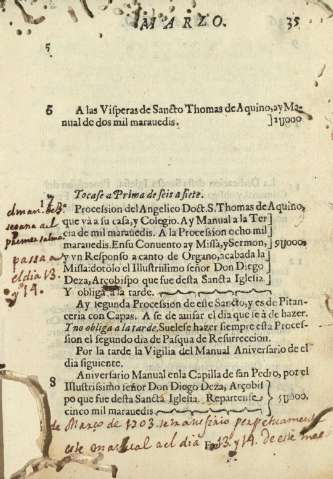 MARZO. 35
5
6 A las Visperas de Sancto Thomas de Aquino, ay Ma-
nual de dos mil maravedis. }2U000
7 Tocase a Prima de seis a siete.
Procession del Angelico Doct. S. Thomas de Aquino,
que và a su casa, y Colegio. Ay Manual a la Ter
cia de mil maravedis. A la Procession ocho mil
maravedis. En su Convento ay Missa, y Sermon,
y vn Responso a canto de Organo, acabada la
Missa: dotòlo el Illustrissimo señor Don Diego
Deza, Arçobispo que fue desta Sancta Iglesia.
Y obliga a la tarde.
Ay segunda Procession de este Sancto, y es de Pitan-
ceria con Capas. A se de ausar el dia que ìa de hazer.
Y no obliga a la tarde, Suelese hazer siempre esta Proces-
sion el segundo dia de Pasqua de Resurreccion.
Por la tarde la Vigilia del Manual Aniversario de el
dia siguiente.
8 Aniversario Manual en la Capilla de san Pedro, por el
Illustrissimo señor Don Diego Deza, Arçobis-
po que fue desta Sancta Iglesia. Repartense
cinco mil maravedis
}9U000
}5U000
passa a
el dia 13.
y 14.
de Março de 1703. se transfirio perpetuamente
este manual a el dia 13. y 14. de este mes